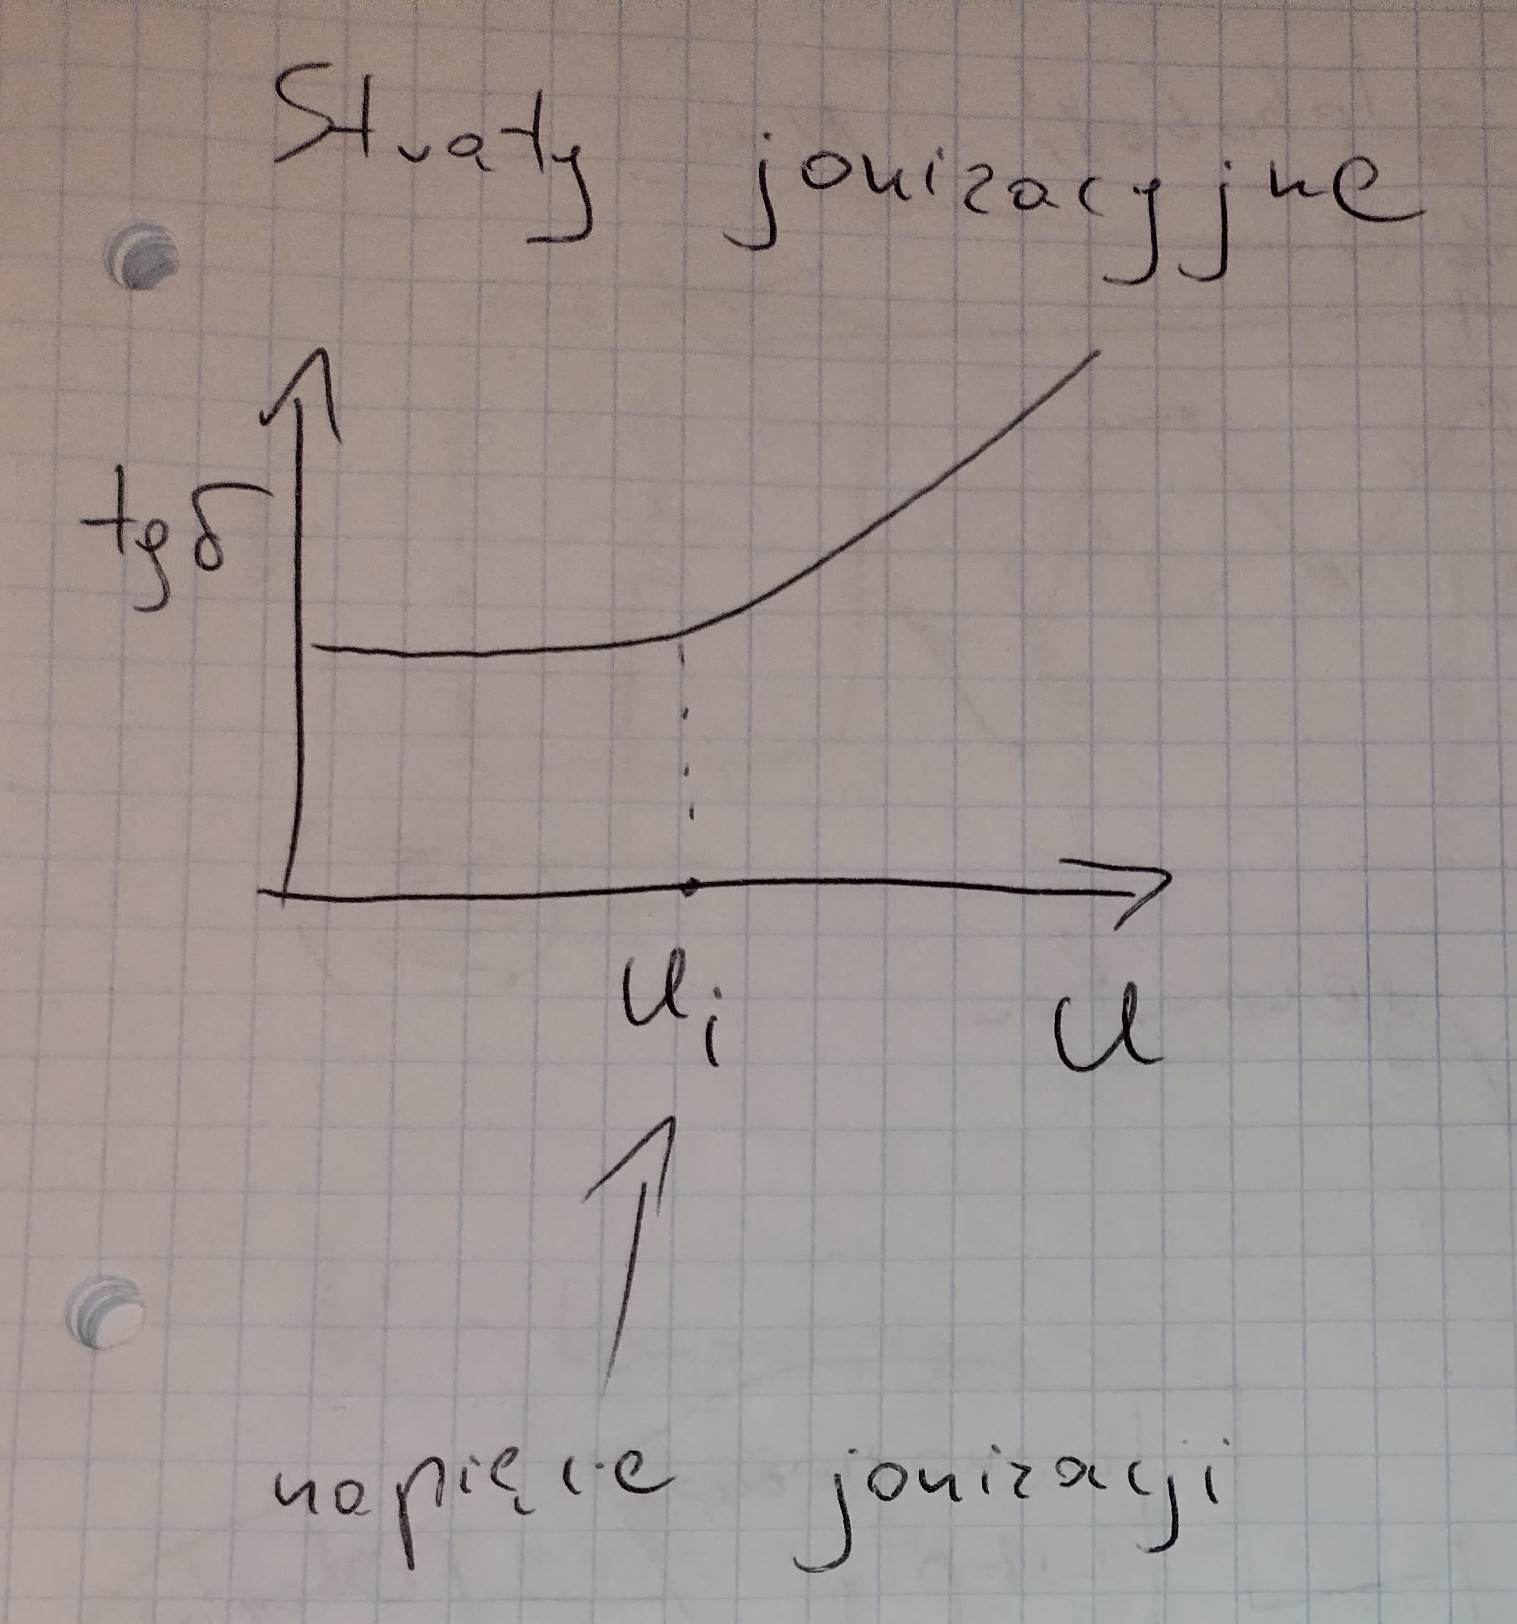 Straty jonizacyjne
tgδ
Ui
U
napięcie jonizacji